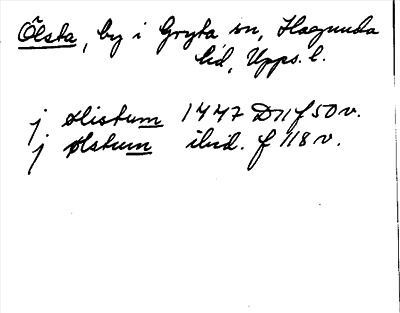 Ölsta, by i Gryta sn, Hagunda
hd, Upps. l.
j ølistum 1447 D11 f 50 v.
j ølstum ibid. f 118 v.